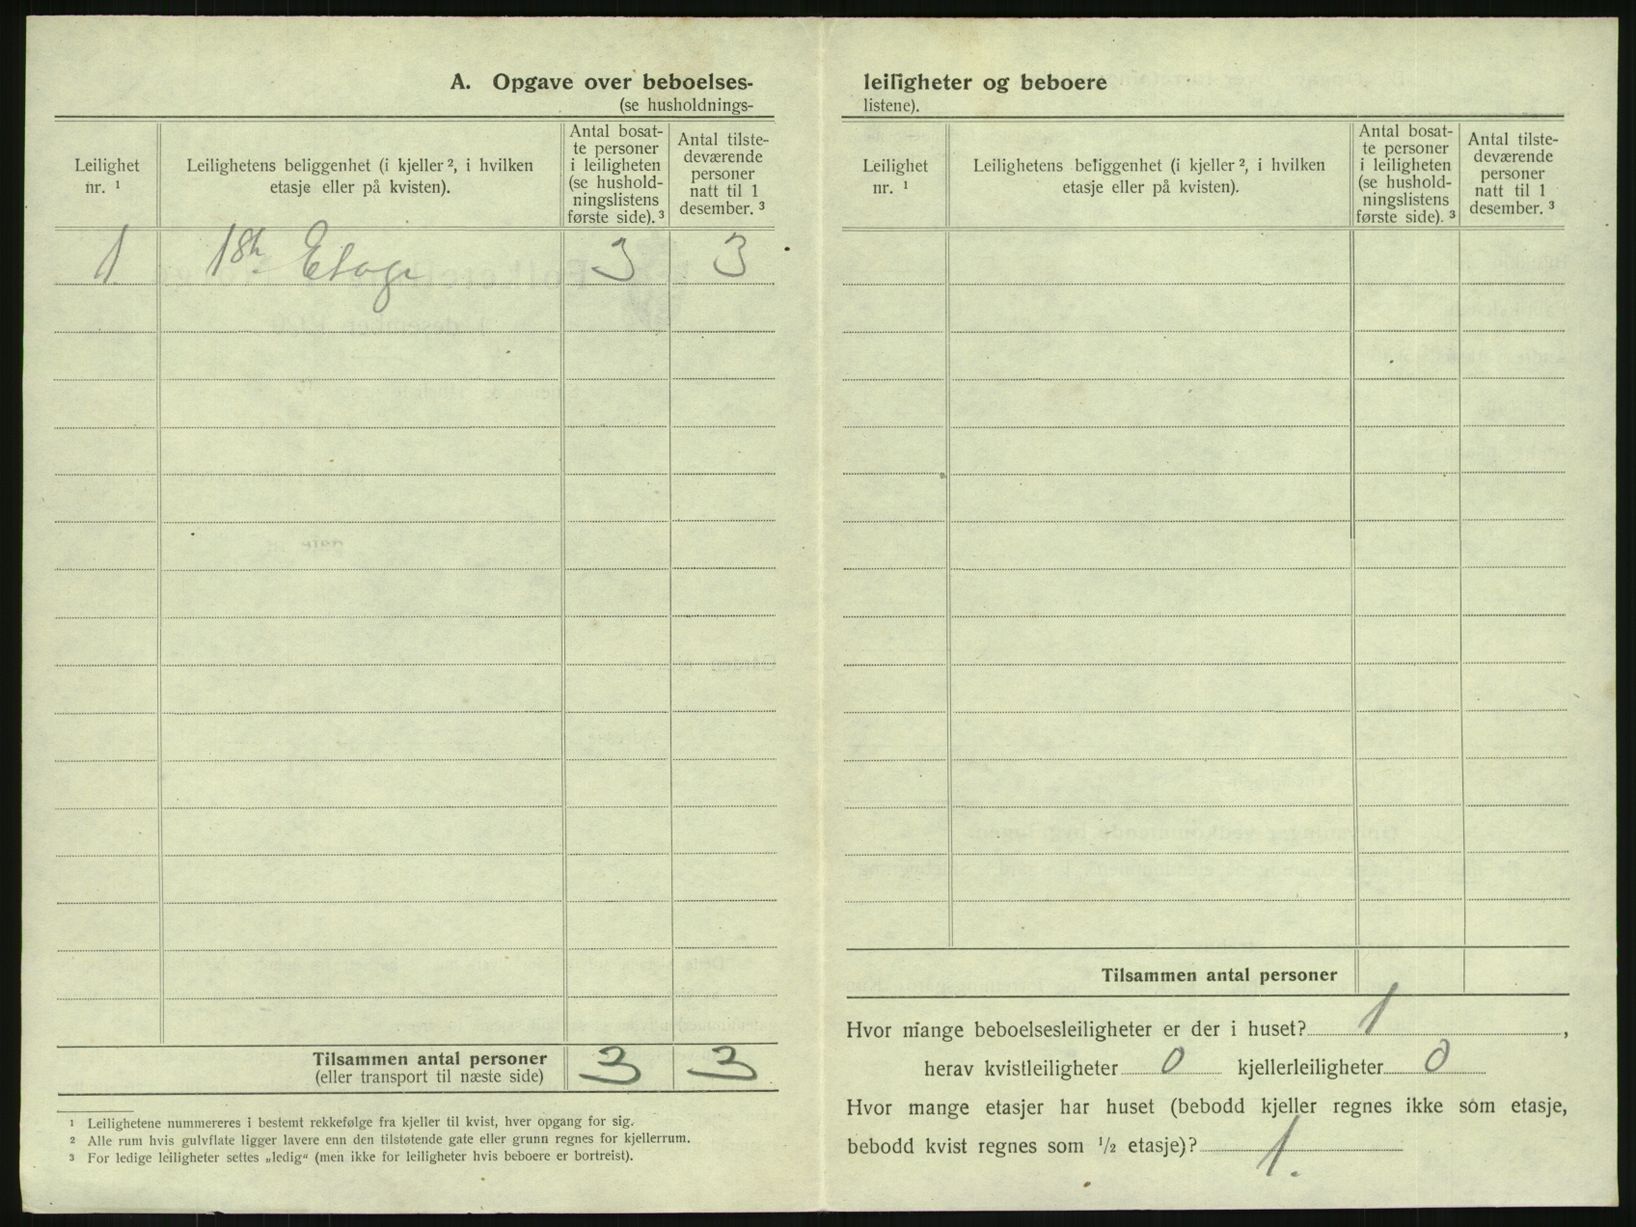 A. Opgave over beboelses-
(se husholdnings-
Leilighet nr. ¹
Leilighetens beliggenhet (i kjeller ², i hvilken
etasje eller på kvisten).
Antal bosat-
te personer
i leiligheten
(se hushold-
ningslistens
første side). ³
Antal tilste-
deværende
personer
natt til 1
desember. ³
1 1ste Etage 3 3
Tilsammen antal personer 3 3
(eller transport til næste side)
¹ Leilighetene nummereres i bestemt rekkefølge fra kjeller til kvist, hver opgang for sig.
² Alle rum hvis gulvflate ligger lavere enn den tilstøtende gate eller grunn regnes for kjellerrum.
³ For ledige leiligheter settes „ledig“ (men ikke for leiligheter hvis beboere er bortreist).
leiligheter og beboere
listene).
Leilighet nr. ¹
Leilighetens beliggenhet (i kjeller ², i hvilken
etasje eller på kvisten).
Antal bosat-
te personer
i leiligheten
(se hushold-
ningslistens
første side). ³
Antal tilste-
deværende
personer
natt til 1
desember. ³
Tilsammen antal personer
Hvor mange beboelsesleiligheter er der i huset? 1,
herav kvistleiligheter 0 kjellerleiligheter 0
Hvor mange etasjer har huset (bebodd kjeller regnes ikke som etasje,
bebodd kvist regnes som ½ etasje)? 1.